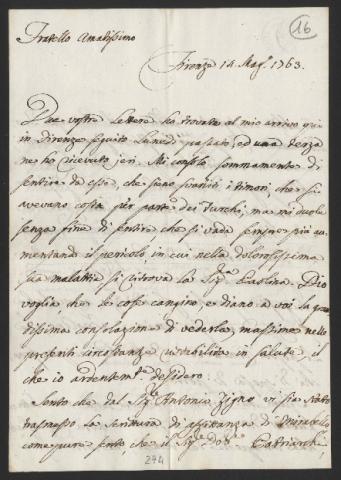 16
Fratello Amatissimo
Firenze 14 Mag. 1763.
Due vostre lettere ho trovate al mio arrivo qui
in Firenze seguito Lunedì passato, ed una terza
ne ho ricevuta jeri. Mi consolo sommamente di
sentire da esse, che siano svaniti i timori, che si
avevano costà per parte dei Turchi, ma mi duole
senza fine di sentire che si vada sempre più au-
mentando il pericolo, in cui nella dolorosissima
sua malattia si ritrova la Sig.ª Paolina. Dio
voglia, che le cose cangino, e diano a voi la gran-
dissima consolazione di vederla, massime nelle
presenti circostanze ristabilita in salute, il
che io ardentem.te desidero.
Sento che dal Sig.r Antonio Zigno vi sia stata
trasmessa la scrittura di affittanza di Mirabello
come pure sento, che il Sig.r Dott.r Patriarchi
274